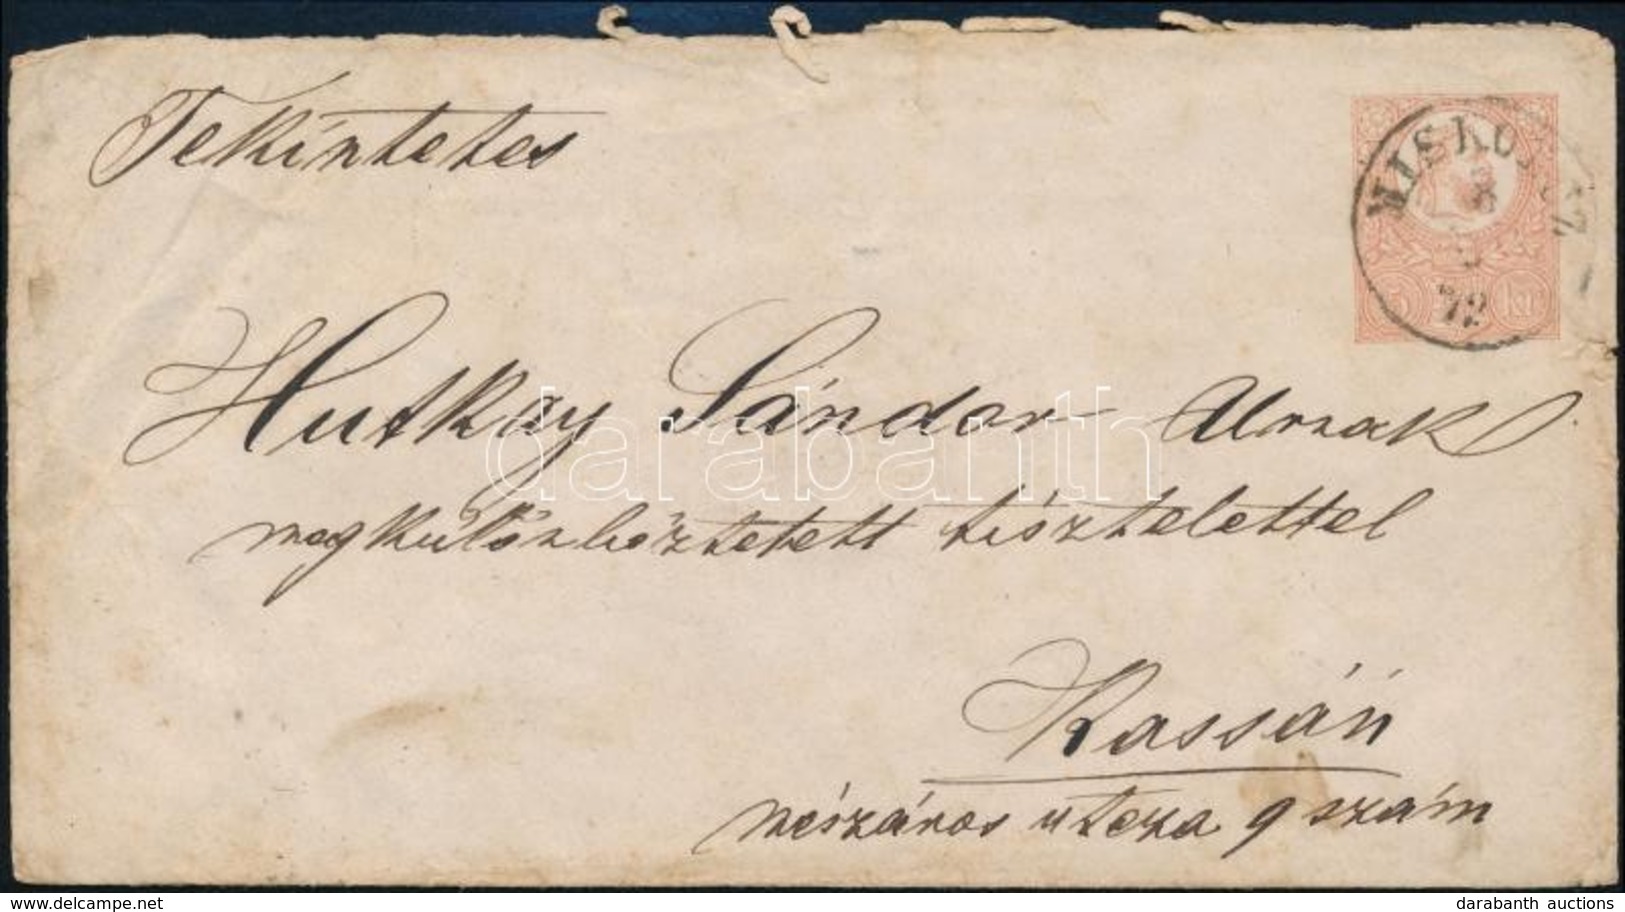 Tekintetes
Hutkay Sándor Urnak
megkülönböztetett tisztelettel
Kassán
mészáros utcza 9 szám
MISKOLCZ
72
5 kr
darabanth
delcampe.net
darabanth auctions